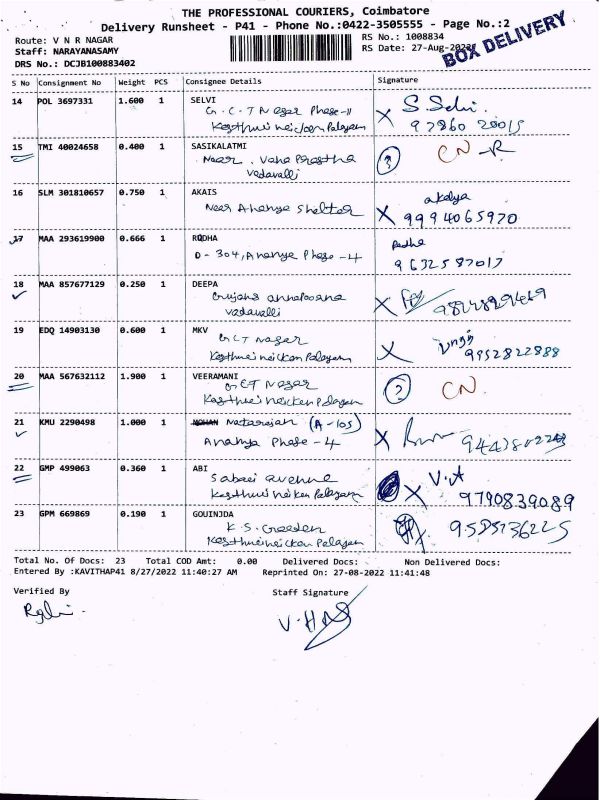 THE PROFESSIONAL COURIERS, Coimbatore
Delivery Runsheet - P41 - Phone No.:0422-3505555 - Page No.:2
Route: V N R NAGAR
RS No.: 1008834
Staff: NARAYANASAMY
RS Date: 27-Aug-2022
BOX DELIVERY
DRS No.: DCJB100883402
S No Consignment No Weight PCS Consignee Details Signature
14 POL 3697331 1.600 1 SELVI
G.C.T Nagar Phase-II
Kasthuri naicken Palayam
X S.Selvi.
97860 20015
15 TMI 40024658 0.400 1 SASIKALATMI
Near. Vana Prastha
Vadavalli
? CN -R
16 SLM 301810657 0.750 1 AKAIS
Near Ananya Shelter
akalya
X 9994065970
17 MAA 293619900 0.666 1 RODHA
D-304, Ananya Phase-4
Radha
9632587017
18 MAA 857677129 0.250 1 DEEPA
annapoorna
Vadavalli
X
19 EDQ 14903130 0.600 1 MKV
GCT Nagar
Kasthuri naicken Palayam
X 9952822888
20 MAA 567632112 1.900 1 VEERAMANI
GCT Nagar
Kasthuri naicken Palayam
? CN.
21 KMU 2290498 1.000 1 MOHAN Natarajan (A-105)
Ananya Phase-4
X
22 GMP 499063 0.360 1 ABI
Sabari avenue
Kasthuri naicken Palayam
X V.A
9790839089
23 GPM 669869 0.190 1 GOUINJDA
K.S. Greeden
Kasthuri naicken Palayam
Total No. Of Docs: 23 Total COD Amt: 0.00 Delivered Docs: Non Delivered Docs:
Entered By :KAVITHAP41 8/27/2022 11:40:27 AM Reprinted On: 27-08-2022 11:41:48
Verified By
Staff Signature